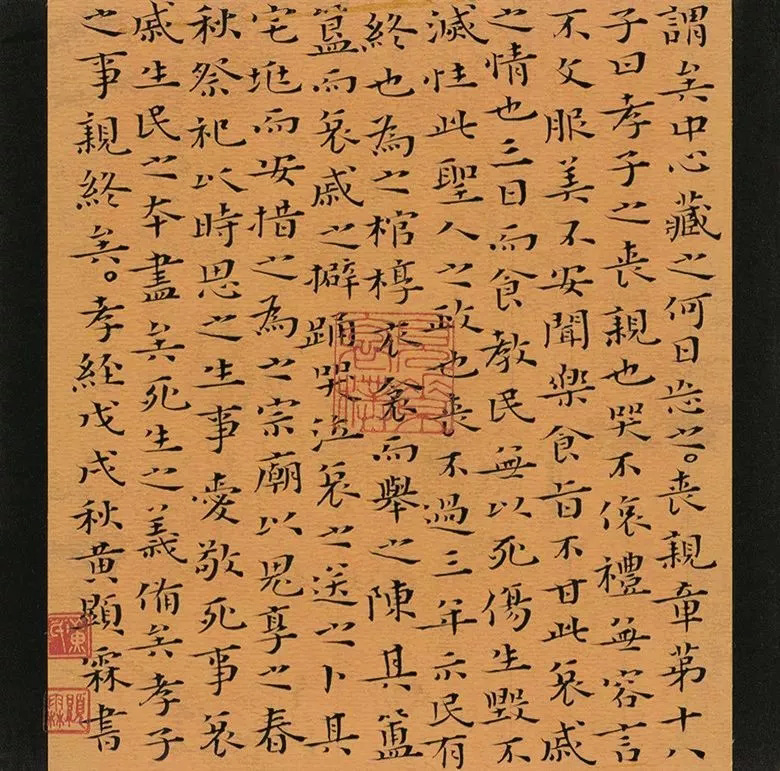 謂矣中心藏之何日忘之。喪親章第十八
子曰孝子之喪親也哭不偯禮無容言
不文服美不安聞樂食旨不甘此哀戚
之情也三日而食教民無以死傷生毀不
滅性此聖人之政也喪不過三年示民有
終也為之棺椁衣衾而舉之陳其簠
簋而哀戚之擗踊哭泣哀以送之卜其
宅垗而安措之為之宗廟以鬼享之春
秋祭祀以時思之生事愛敬死事哀
戚生民之本盡矣死生之義備矣孝子
之事親終矣。孝經戊戌秋黃顯霖書
黃氏
顯霖